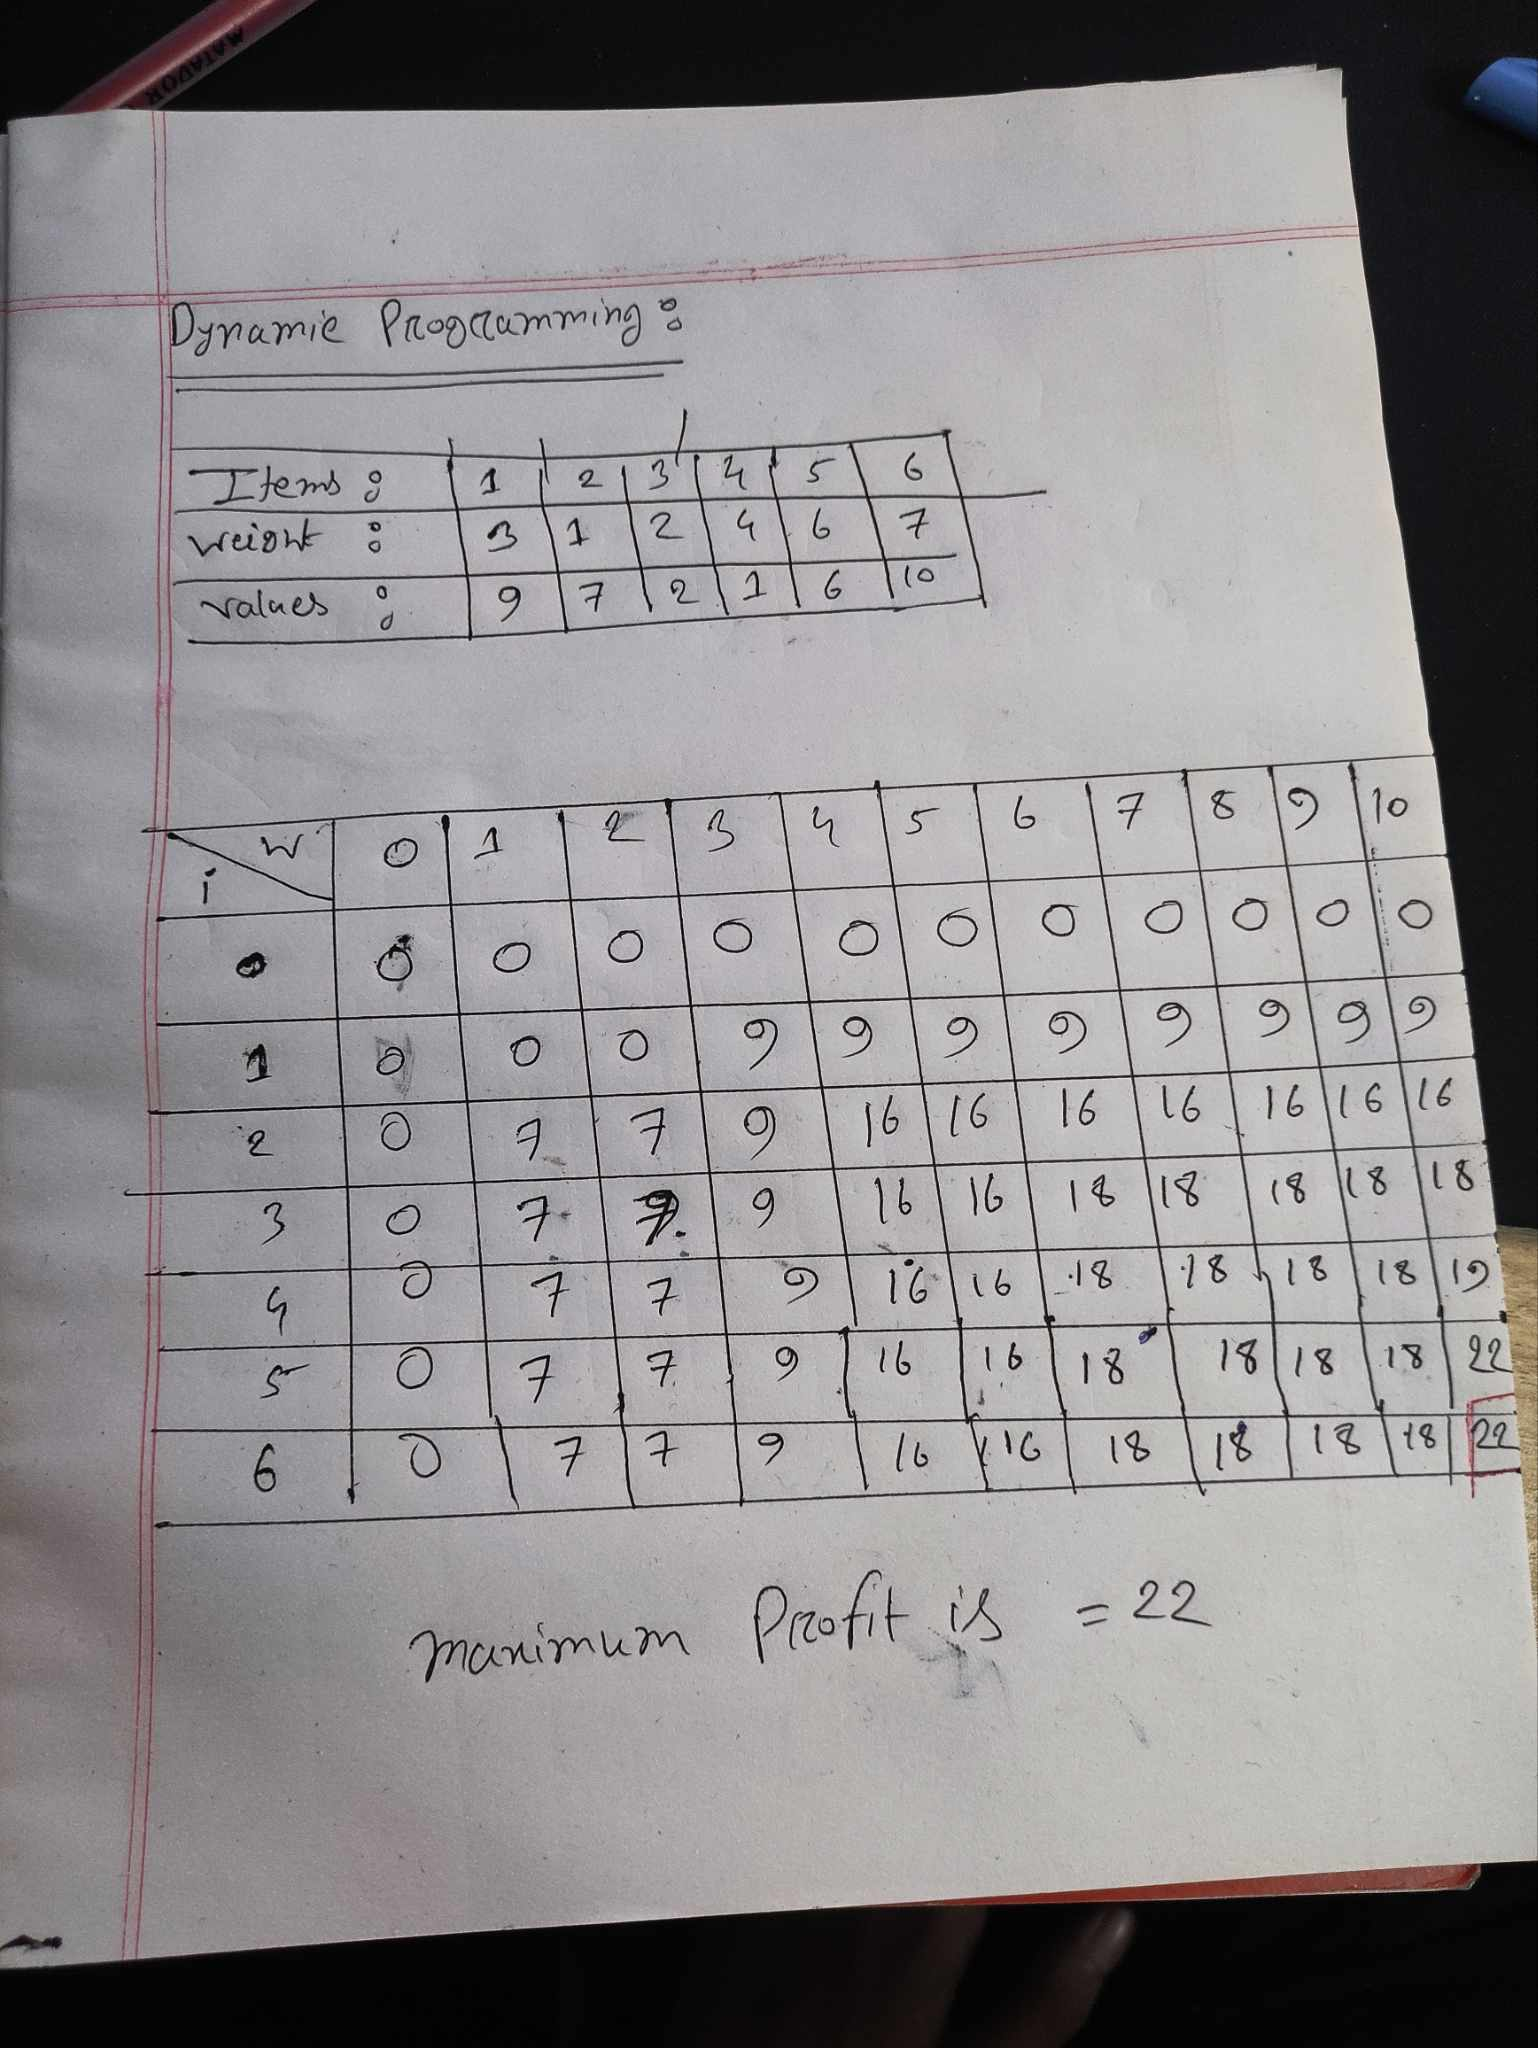 MATADOR
Dynamic Programming :
Items : 1 2 3 4 5 6
weight : 3 1 2 4 6 7
values : 9 7 2 1 6 10
W 0 1 2 3 4 5 6 7 8 9 10
i
0 0 0 0 0 0 0 0 0 0 0 0
1 0 0 0 9 9 9 9 9 9 9 9
2 0 7 7 9 16 16 16 16 16 16 16
3 0 7 7 9 16 16 18 18 18 18 18
4 0 7 7 9 16 16 18 18 18 18 19
5 0 7 7 9 16 16 18 18 18 18 22
6 0 7 7 9 16 16 18 18 18 18 22
maximum Profit is = 22